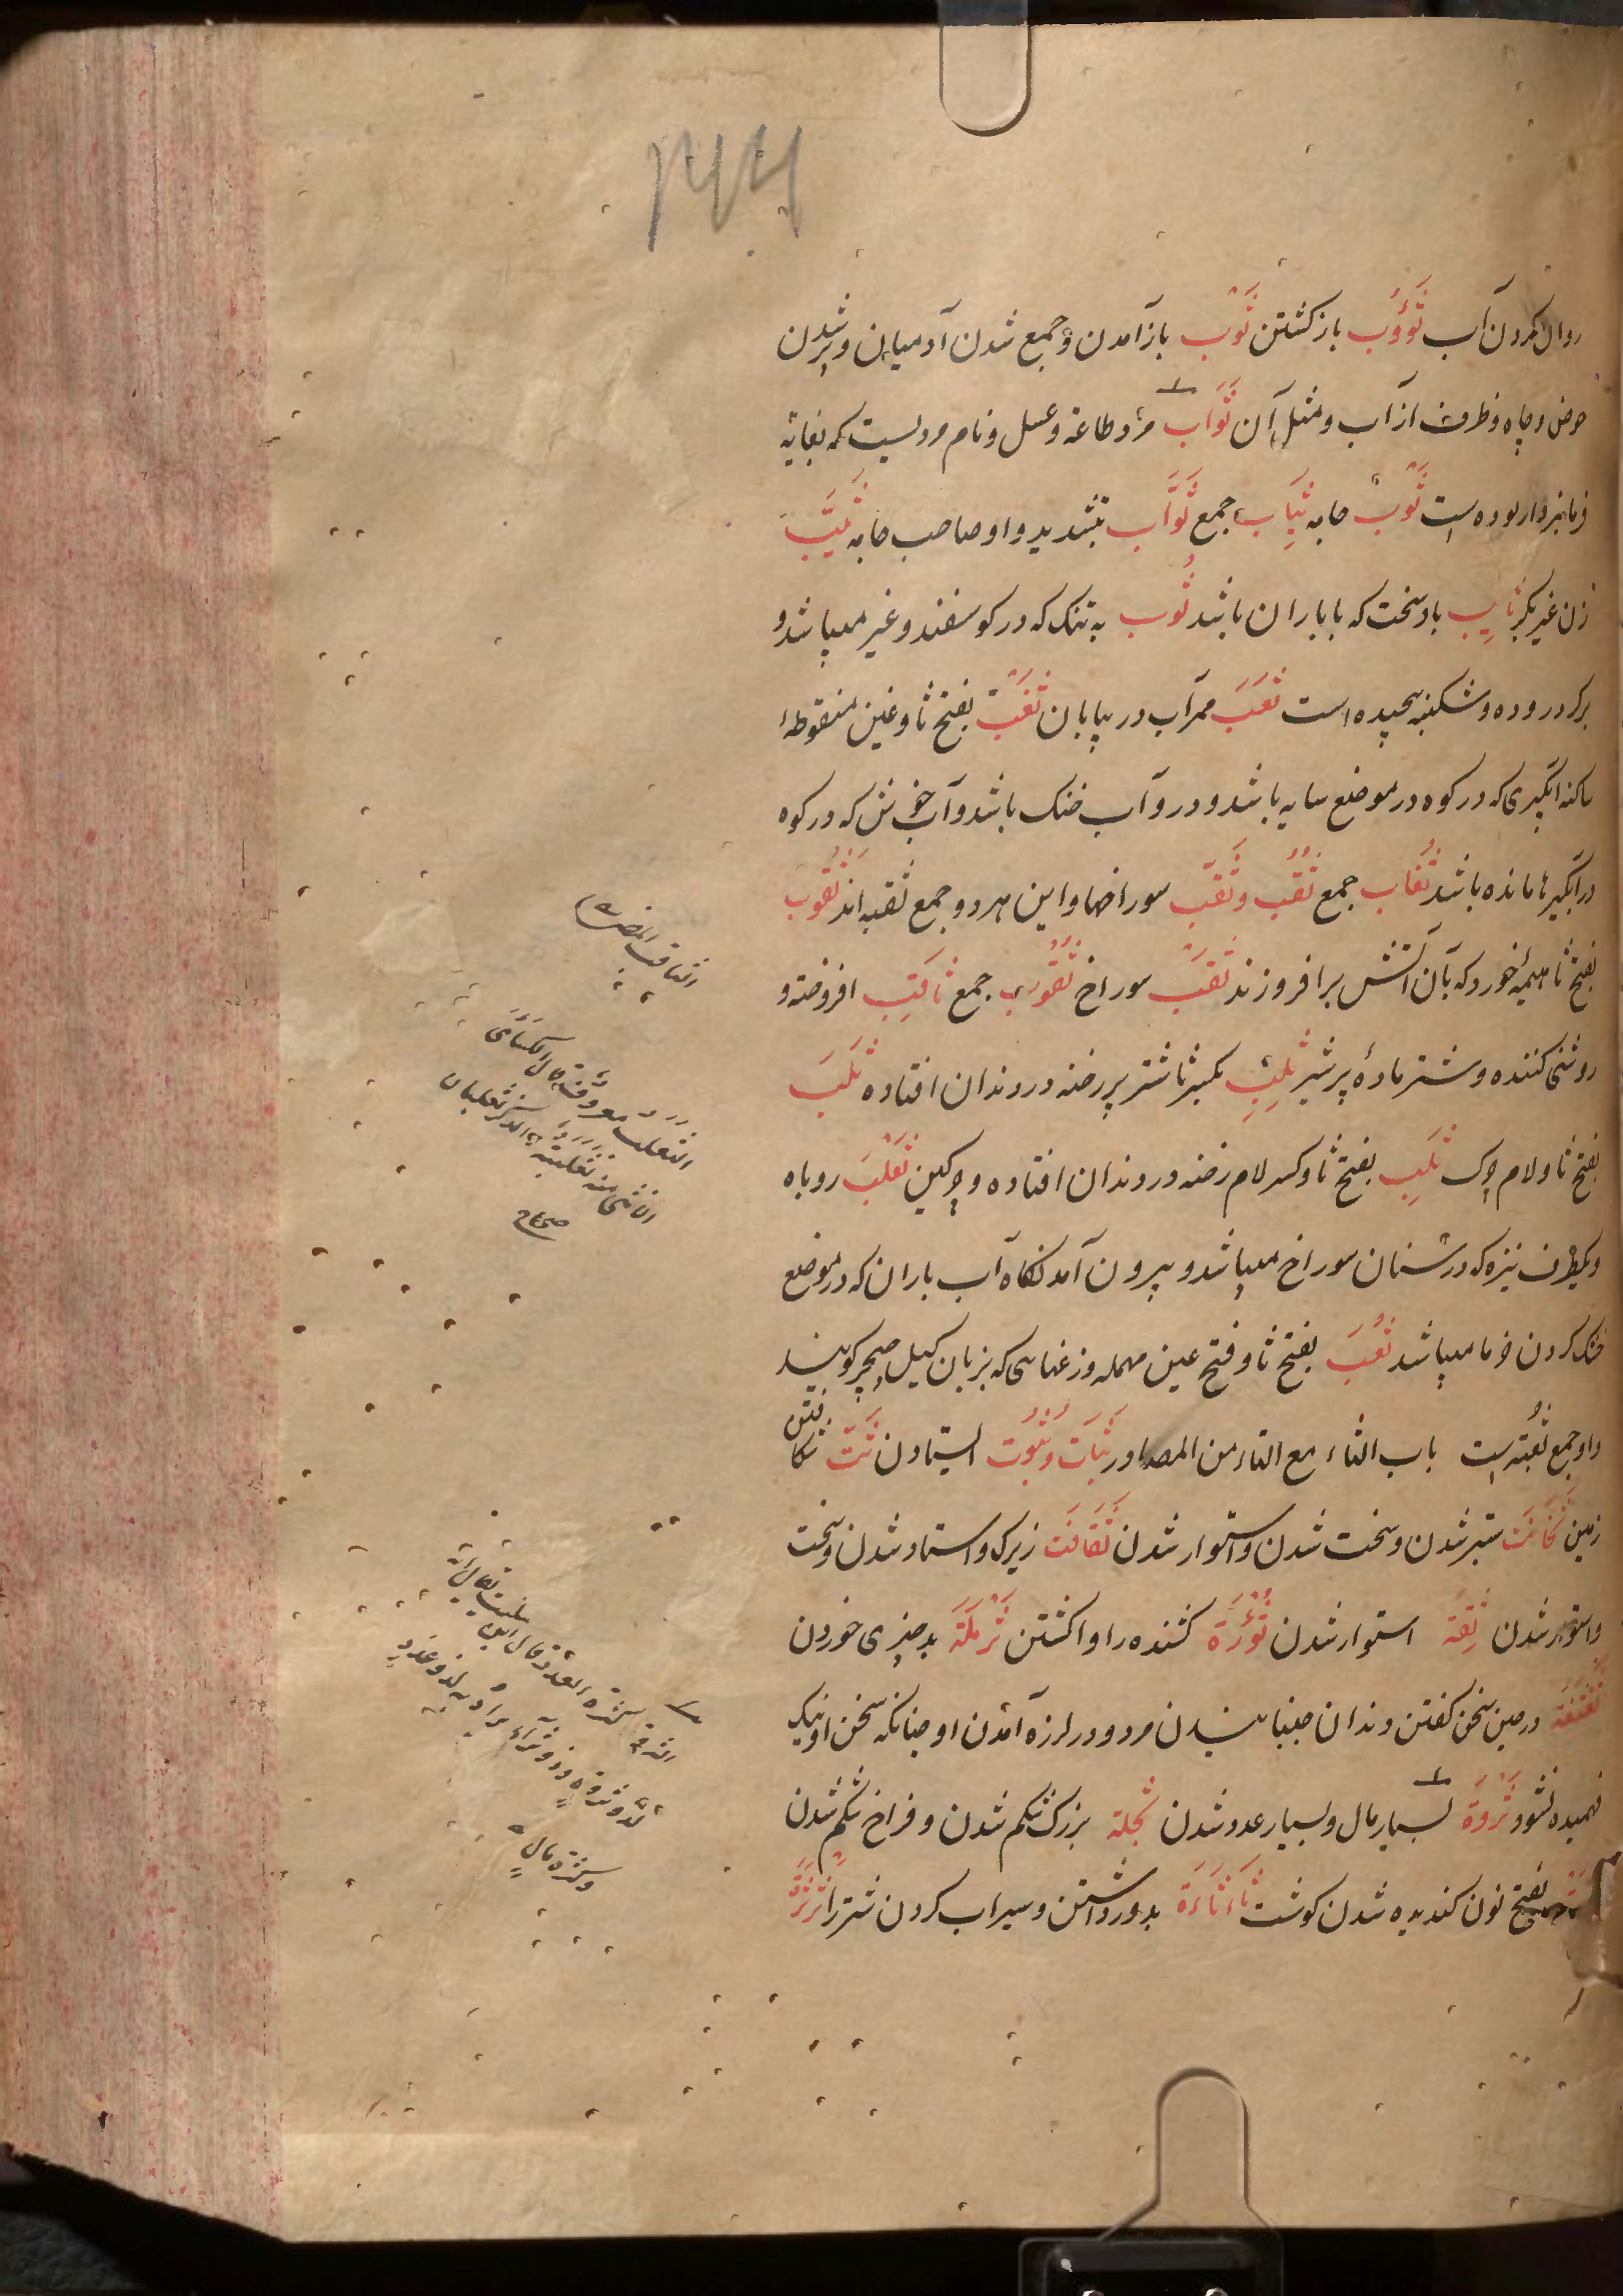 ۲۴۴
روان کردن آب ثُؤُوب باز کشتن ثَوْب باز آمدن و جمع شدن آدمیان و پر شدن
حوض و چاه و ظرف از آب و مثل آن ثَوَاب مزد طاعة و عسل و نام مردیست که بغایة
فرمانبردار بوده است ثَوْب جامه ثِیَاب جمع ثَوَّاب بتشدید واو صاحب جامه ثَیِّب
زن غیر بکر ثَایِب باد سخت که با باران باشد ثُوب په تنک که در کوسفند و غیر میباشد و
بر کرد روده و شکنبه پیچیده است ثَعَب ممر آب در بیابان ثَغْب بفتح ثا و غین منقوطهٔ
ساکنه آبگیری که در کوه در موضع سایه باشد و درو آب خنک باشد و آب خوش که در کوه
در آبگیرها مانده باشد ثُغَاب جمع ثُقُب و ثُقَب سوراخها و این هر دو جمع ثقبه اند ثَقُوب
بفتح ثا هیمهٔ خورد که بآن آتش برافروزند ثَقْب سوراخ ثُقُوب جمع ثَاقِب افروخته و
روشنی کننده و شتر مادهٔ پر شیر ثِلْب بکسر ثا شتر پر رخنه در دندان افتاده ثَلَب
بفتح ثا و لام چرک ثَلِب بفتح ثا و کسر لام رخنه در دندان افتاده و چرکین ثَعْلَب روباه
و یکطرف نیزه که در سنان سوراخ میباشد و بیرون آمدنگاه آب باران که در موضع
خشک کردن خرما میباشد ثُعَب بفتح ثا و فتح عین مهمله وزغهایی که بزبان کیل کویند
و او جمع ثُعبَة است باب الثاء مع التاء من المصادر ثَبَات و ثُبُوت ایستادن ثَتّ شکافتن
زمین ثَخَانَت ستبر شدن و سخت شدن و استوار شدن ثَقَافَت زیرک و استاد شدن و سخت
و استوار شدن ثِقَة استوار شدن ثُؤْرَة کشنده را وا کشتن ثَرْمَلَة بد چیزی خوردن
ثَغْثَغَة در حین سخن کفتن دندان جنبانیدن مرد و در لرزه آمدن او چنانکه سخن او نیک
فهمیده نشود ثَرْوَة بسیار مال و بسیار عدد شدن ثُجْلَة بزرک شکم شدن و فراخ شکم شدن
بفتح نون کندیده شدن کوشت ثَأْثَاءَة بدور داشتن و سیراب کردن شتر را ثَرْثَرَة
الثعلب معروف قال الکسائی
الانثی منه ثعلبة والذکر ثعلبان
صحاح
الثروة کثرة العدد قال ابن السکیت یقال انه
لذو ثروة و ذو ثراء یراد به لذو عدد
و کثرة مال